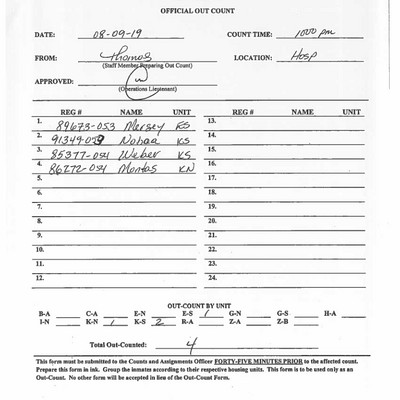 OFFICIAL OUT COUNT
DATE: 08-09-19 COUNT TIME: 1000 pm
FROM: Thomas LOCATION: Hosp
(Staff Member Preparing Out Count)
APPROVED:
(Operations Lieutenant)
REG # NAME UNIT REG # NAME UNIT
1. 89673-053 Mersey ES 13.
2. 91349-0 KS 14.
3. 85377-054 Weber KS 15.
4. 86272-054 Montas KN 16.
5. 17.
6. 18.
7. 19.
8. 20.
9. 21.
10. 22.
11. 23.
12. 24.
OUT-COUNT BY UNIT
B-A C-A E-N E-S 1 G-N G-S H-A
I-N K-N 1 K-S 2 R-A Z-A Z-B
Total Out-Counted: 4
This form must be submitted to the Counts and Assignments Officer FORTY-FIVE MINUTES PRIOR to the affected count.
Prepare this form in ink. Group the inmates according to their respective housing units. This form is to be used only as an
Out-Count. No other form will be accepted in lieu of the Out-Count Form.